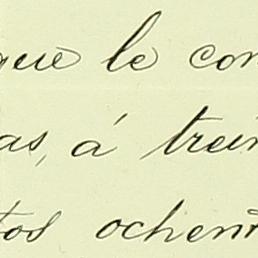 que le con
as, á trein
tos ochent